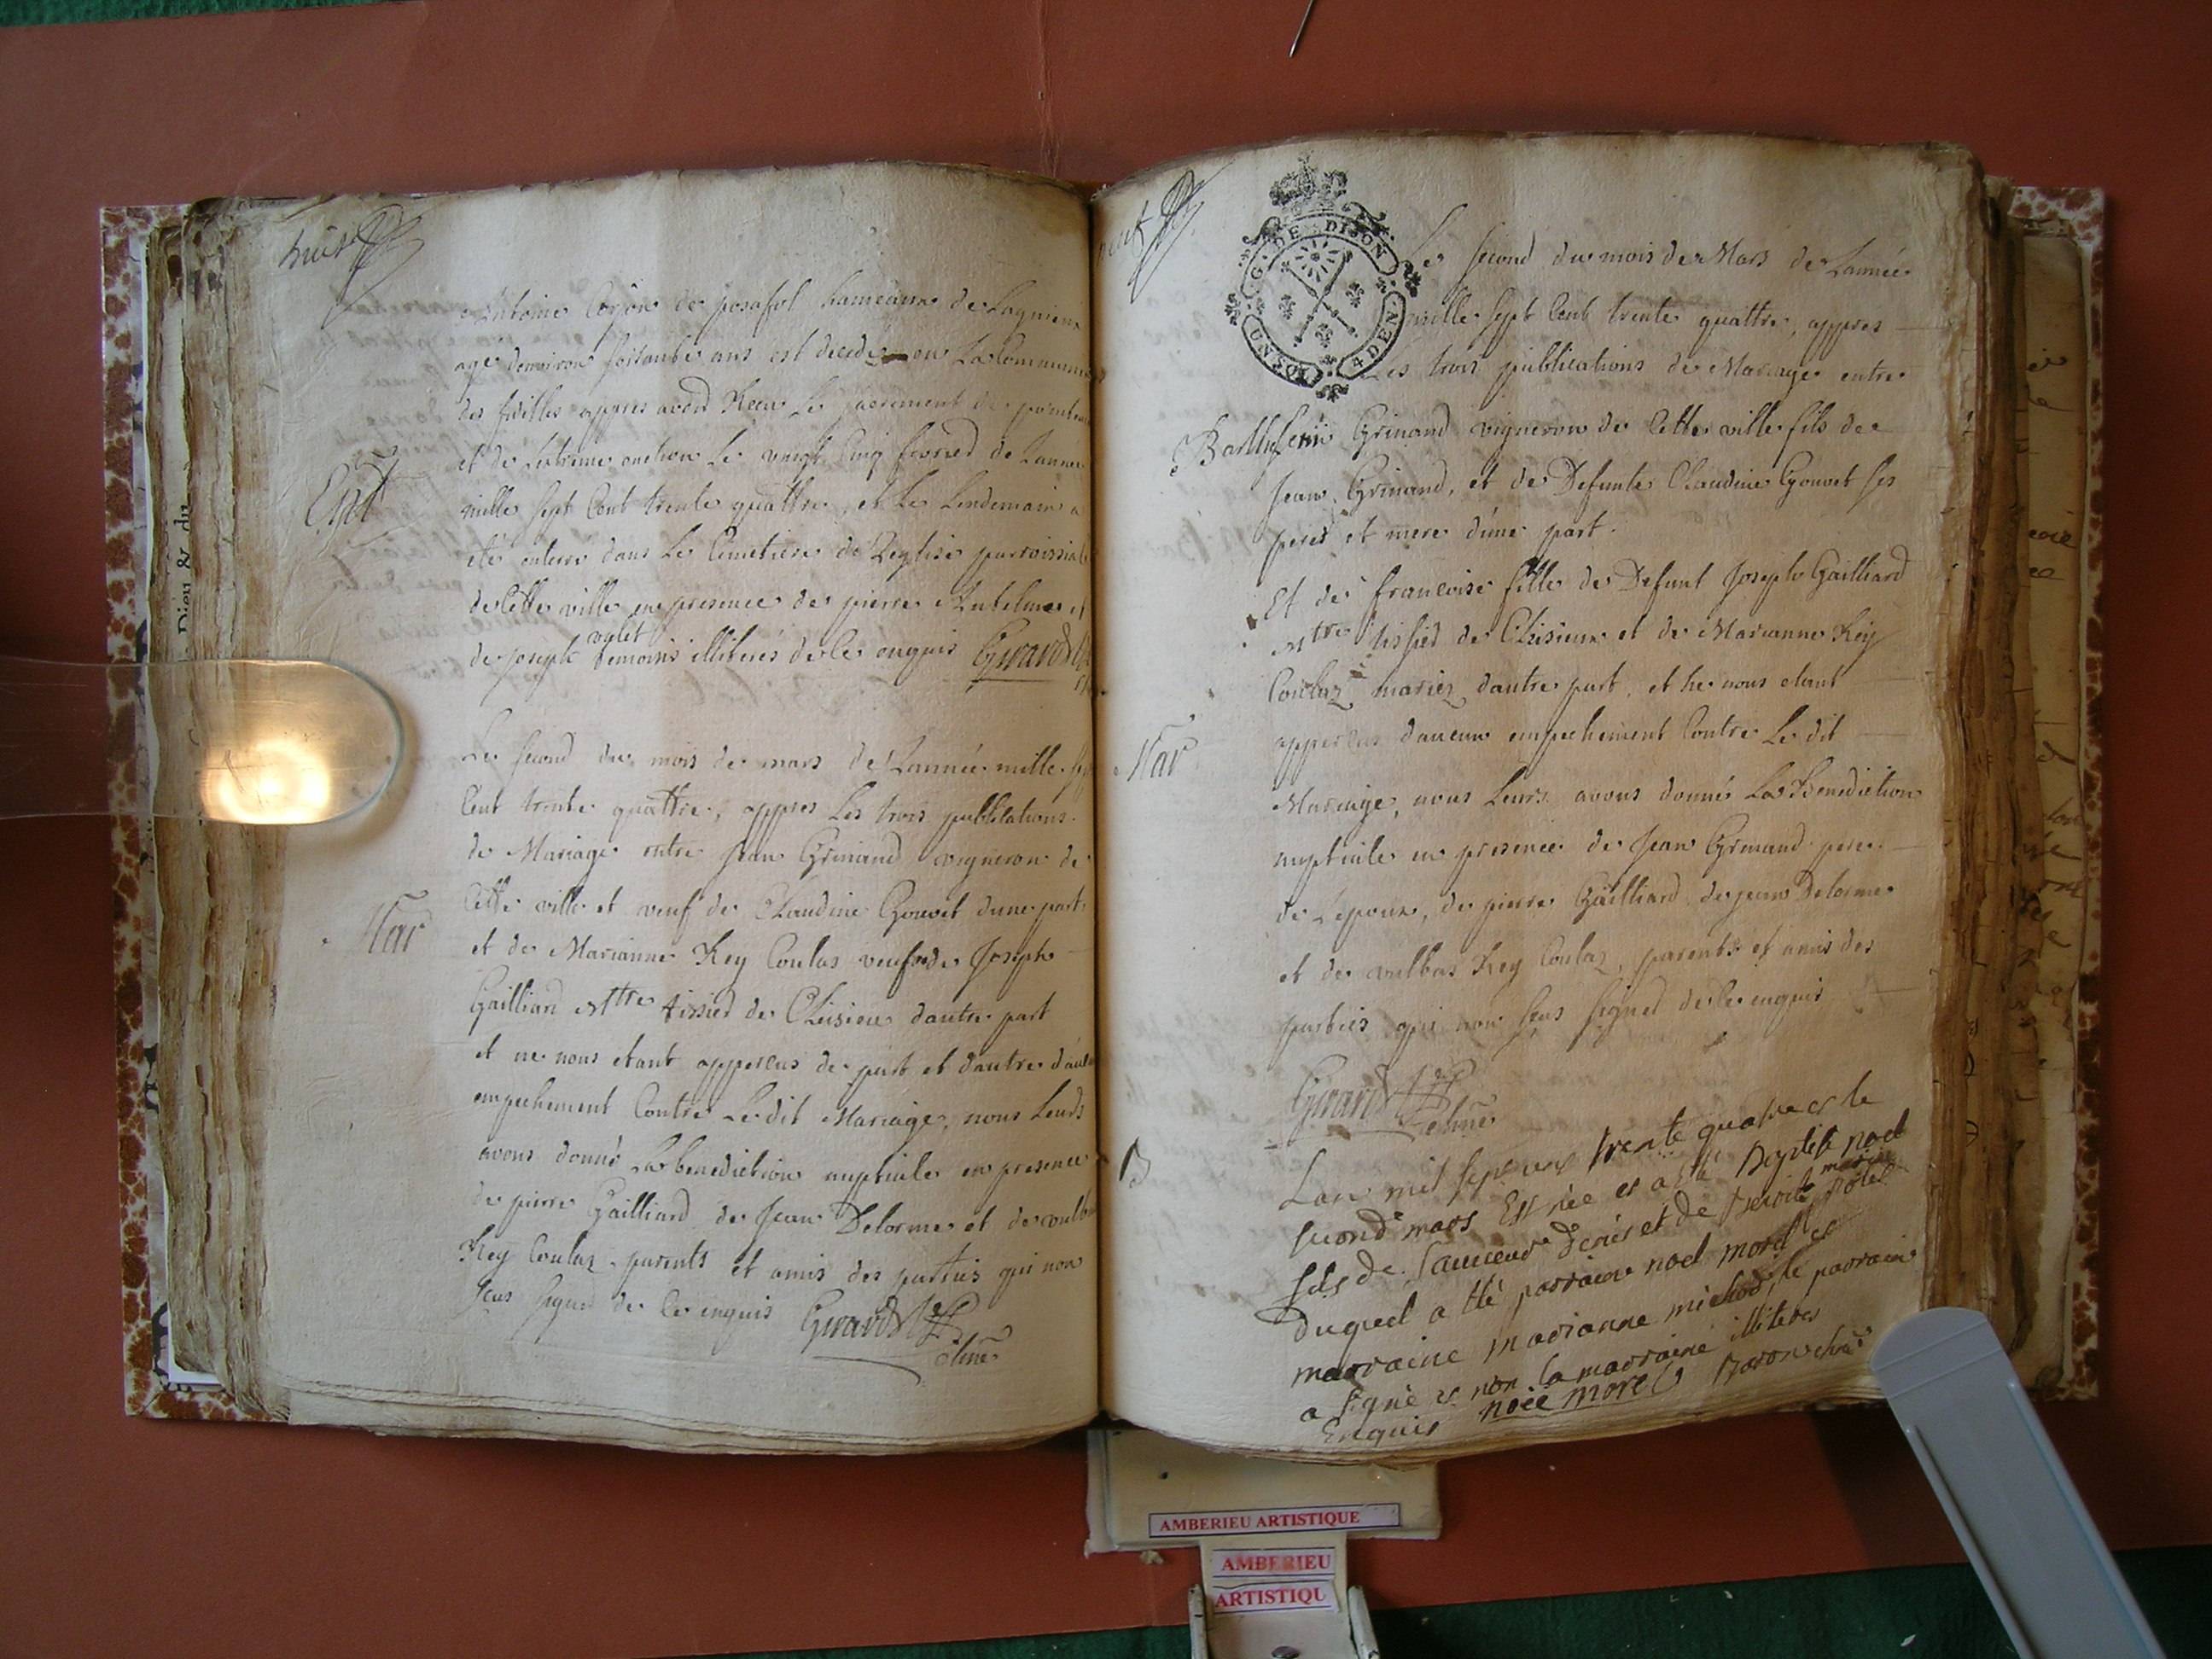 huit
Antoine Corjon de posafol hameaux de Lagnieux
age denviron soisante ans est decede en La Communion
des fidelles appres avoir Receu Le sacrement de penitence
et de Lextreme onction Le vingt Cinq fevried de Lannee
Ent
mille sept Cent trente quattre, et Le Lendemain a
eté enterre dans Le Cimetiere de Leglise parroissiale
de Cette ville en presence de pierre Antelme et
de joseph valet temoins illiterés de Ce enquis Girard
Le second du mois de mars de Lannée mille sept
Cent trente quattre, appres Les trois publications
de Mariage entre Jean Grinand vigneron de
Cette ville et veuf de Claudine Gouvet dune part
Mar
et de Marianne Rey Coulas veufve de Joseph
Gailliard Mtre tissied de Chisieu dautre part
et ne nous etant apperceus de part et dautre d'aucun
empechement Contre Le dit Mariage, nous Leurs
avons donné La benediction nuptiale en presence
de pierre Gailliard de Jean Delorme et de vulbas
Rey Coulaz parents et amis des parties qui non
sceus signed de Ce enquis Girard
neuf
G. DE DIJON
4 DEN.
Le second du mois de Mars de Lannée
mille sept Cent trente quattre, appres
Les trois publications de Mariage entre
Barthelemi Grinand vigneron de Cette ville fils de
Jean Grinand, et de Defunte Claudine Gouvet ses
pered et mere d'une part.
Et de francoise fille de Defunt Joseph Gailliard
Mtre tissied de Chisieux et de Marianne Rey
Coulaz mariez dautre part, et ne nous etant
apperceus daucun empechement Contre Le dit
Mar
Mariage, nous Leurs avons donné La Benediction
nuptiale en presence de Jean Grinand pere
de Lepoux, de pierre Gailliard de jean Delorme
et de vulbas Rey Coulaz, parents et amis des
parties qui non sceus signed de Ce enquis
Girard
B
Lan mil sept cent trente quatre et le
second mars Est née et a eté Baptisé noel
fils de et de Benoite
duquel a été parrain noel morel et
marraine marianne michod, le parrain
a signé et non la marraine illiterés
Enquis noel morel
Dieu & du
AMBERIEU ARTISTIQUE
AMBERIEU
ARTISTIQU